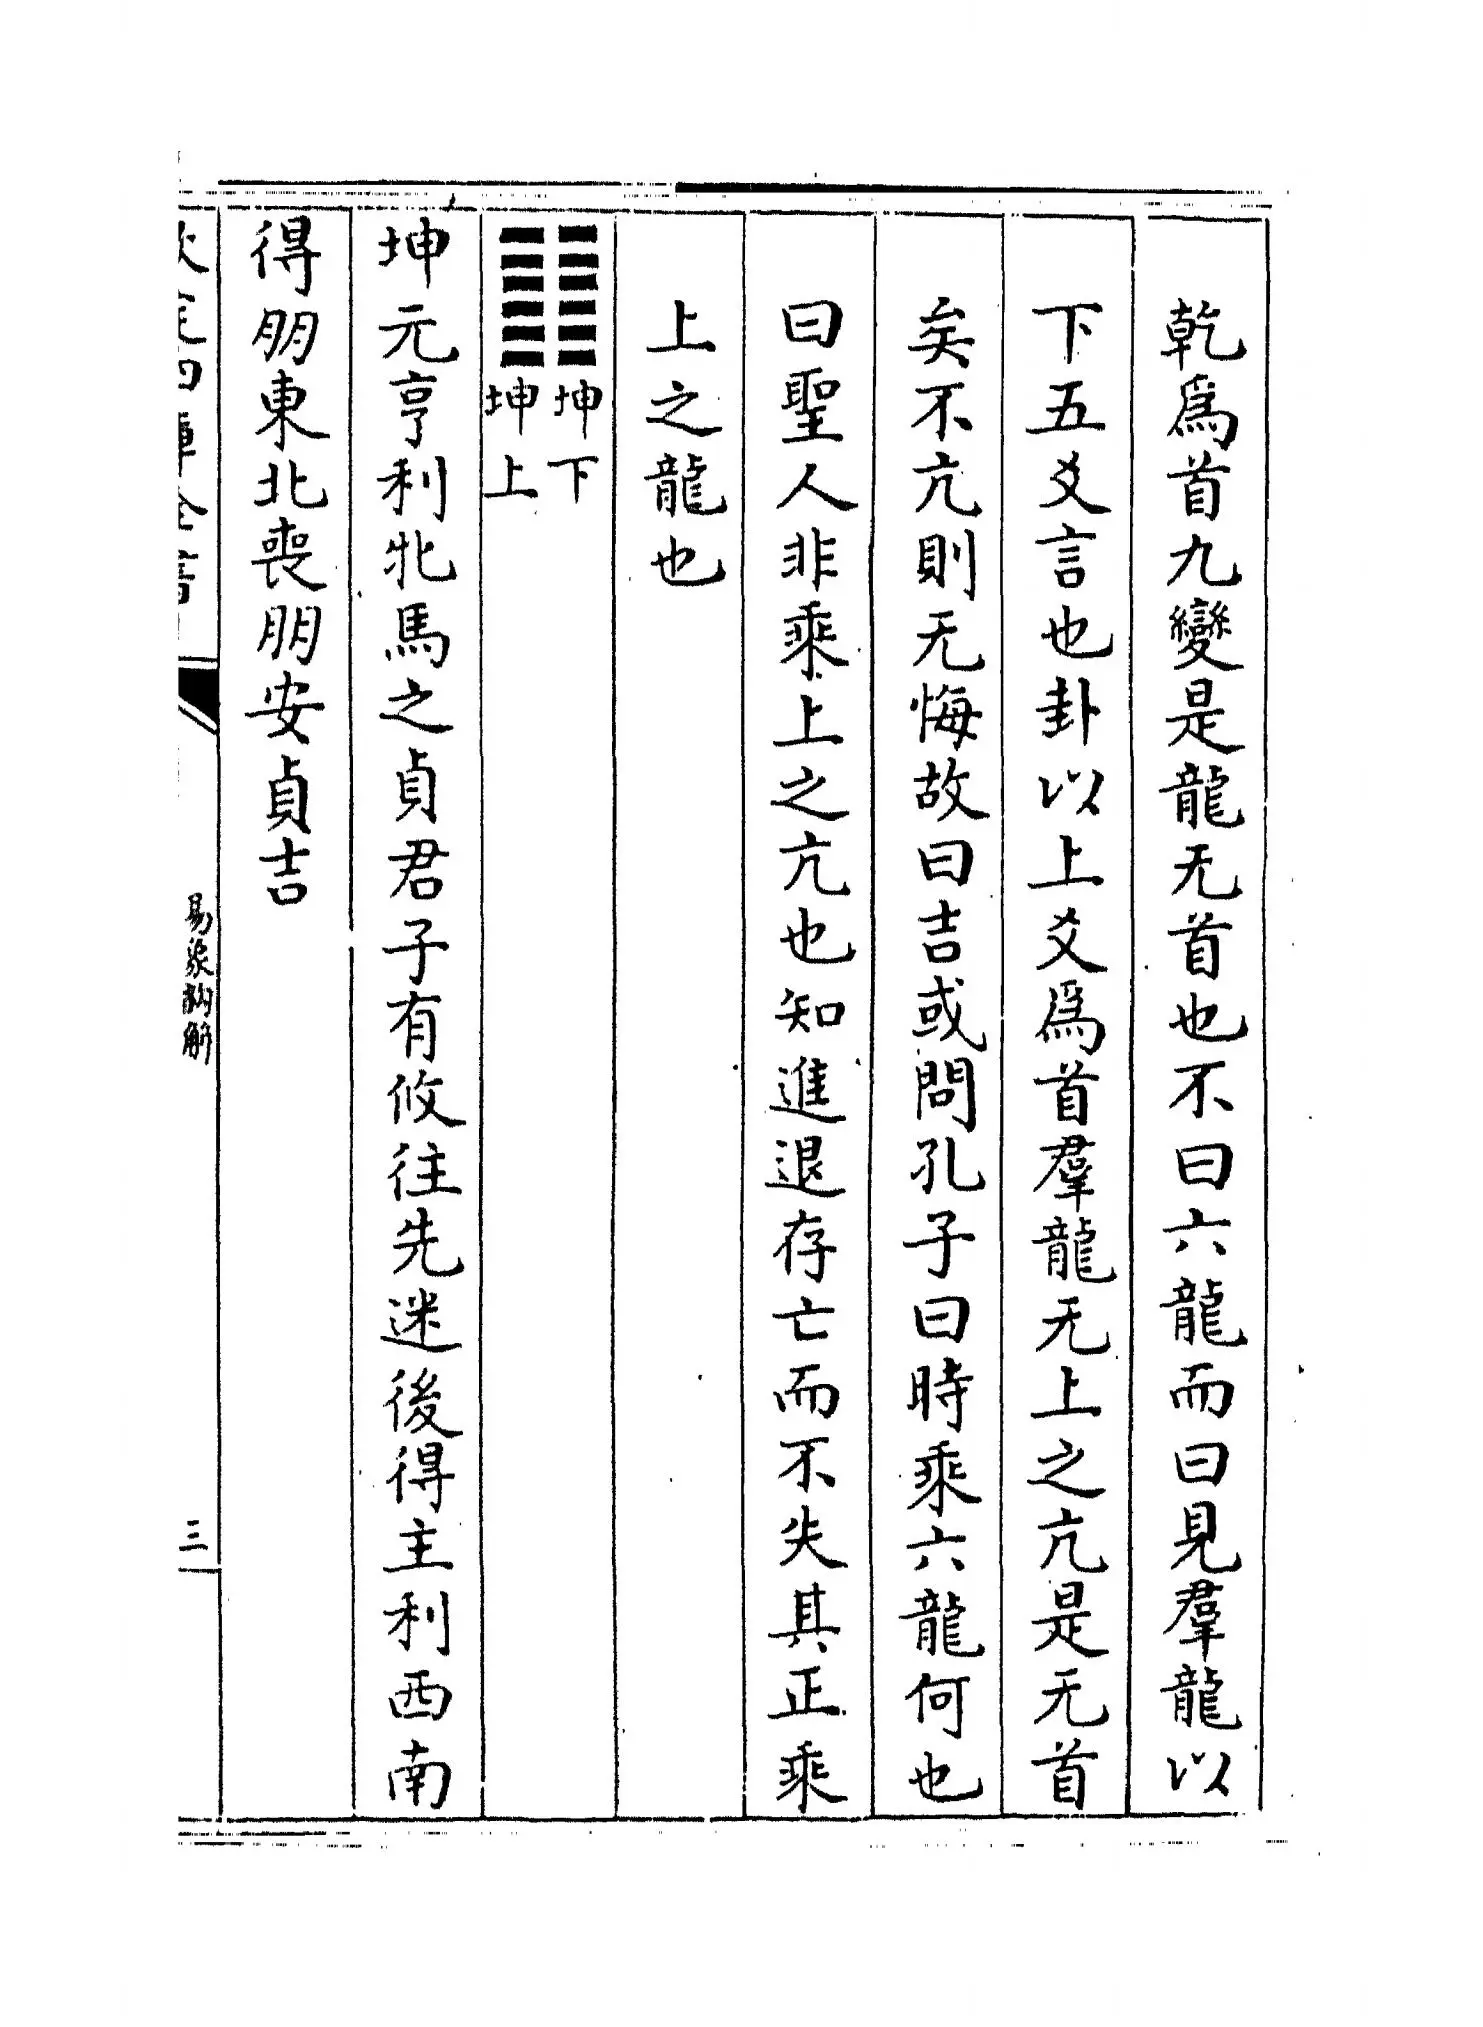 乾爲首九變是龍无首也不曰六龍而曰見羣龍以
下五爻言也卦以上爻爲首羣龍无上之亢是无首
矣不亢則无悔故曰吉或問孔子曰時乘六龍何也
曰聖人非乘上之亢也知進退存亡而不失其正乘
上之龍也
坤下
坤上
坤元亨利牝馬之貞君子有攸往先迷後得主利西南
得朋東北喪朋安貞吉
欽定四庫全書
易象鈎解
三